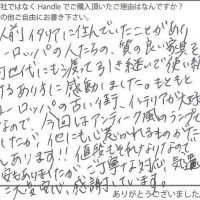 社ではなくHandleでご購入頂いたご理由はなんですか?
の他ご自由にお書き下さい。
人的イタリアに住んでいたことがあり
ヨーロッパの人たちの、質の良い家具を
何世代にも渡って引き継いで使い続
けるありように感動しました。もともと
ヨーロッパの古い街、インテリアが大好
なので、今回はアンティーク風のランプで
したが、他にも心惹かれるものがた
しあります!! 値段もそれなりなので
安もありましたが、ご丁寧な対応、気遣
に大変感謝しています。
ありがとうございました